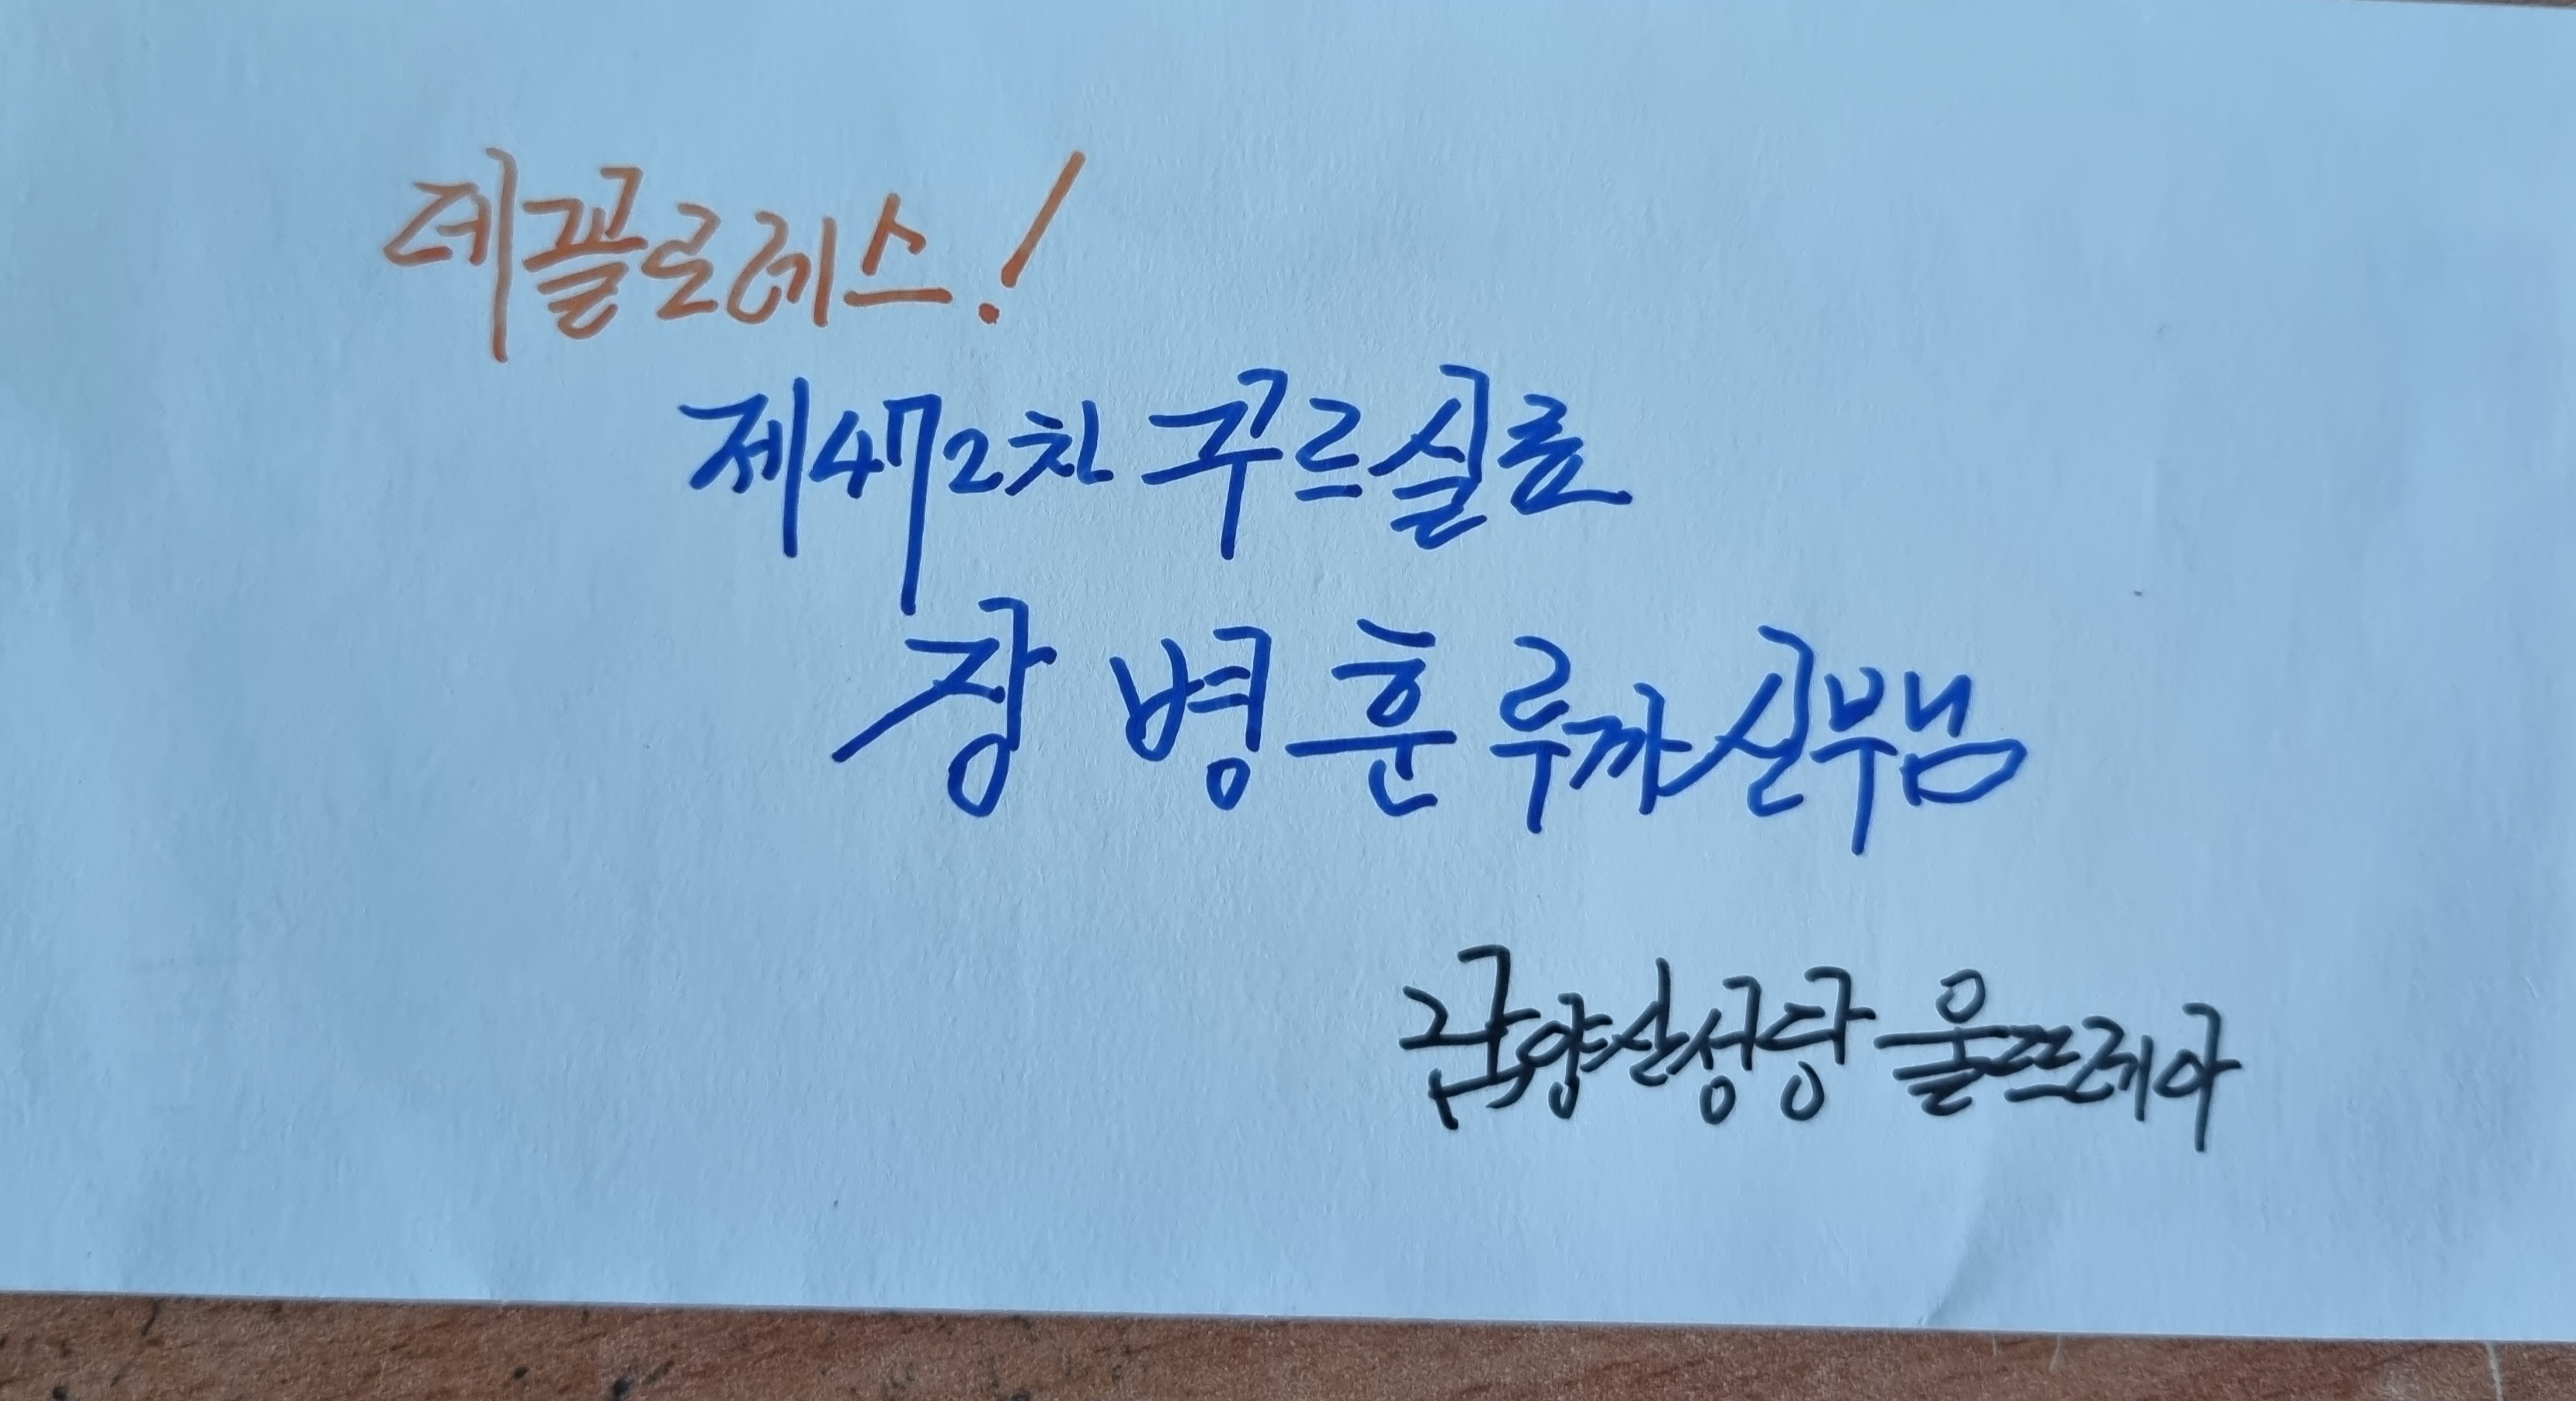 데꼴로레스!
제472차 꾸르실료
장 병 훈 루까 신부님
금양산성당 울뜨레아